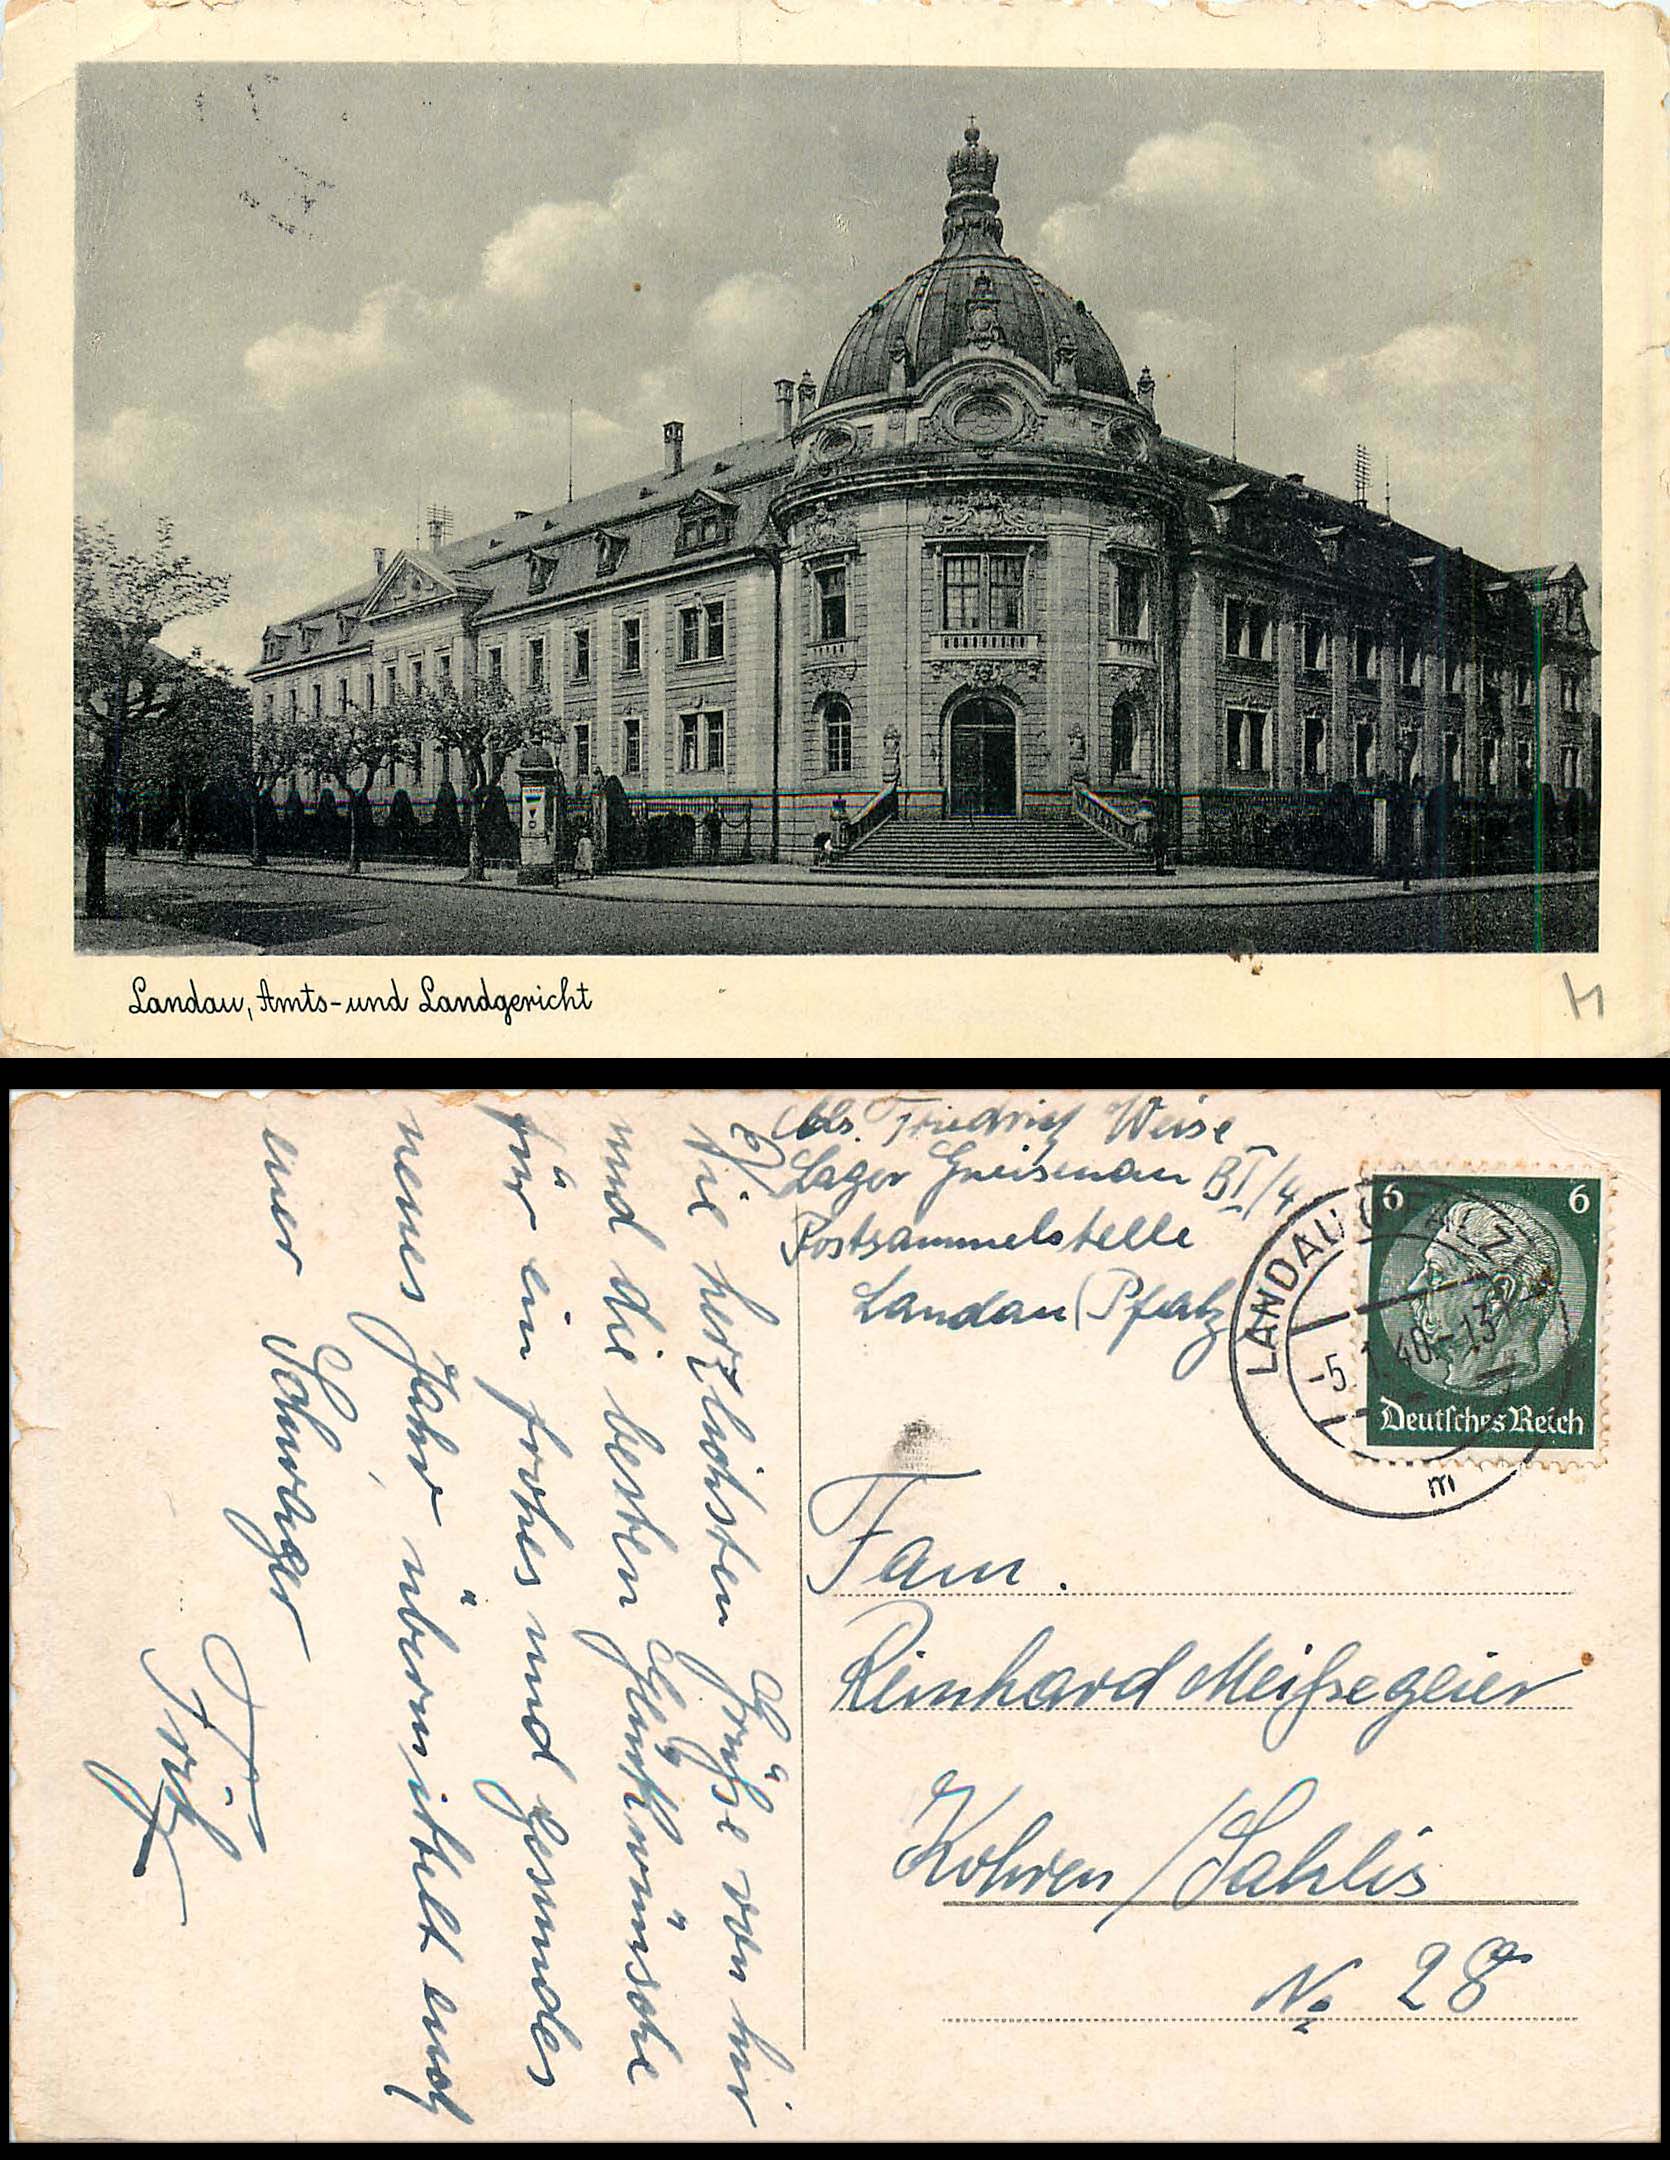 Landau, Amts-und Landgericht
Abs. Friedrich Weise
Lager Gneisenau BI/4
Postsammelstelle
Landau (Pfalz
LANDAU (PFALZ
-5.1.40.-13
m
6 6
Deutsches Reich
Fam.
Reinhard Meißegeier
Kohren/Sahlis
No 28
Die herzlichsten Grüße von hir
und die besten Glückwünsche
für ein frohes und gesundes
neues Jahr übermittelt euch
euer Schwager
Fritz